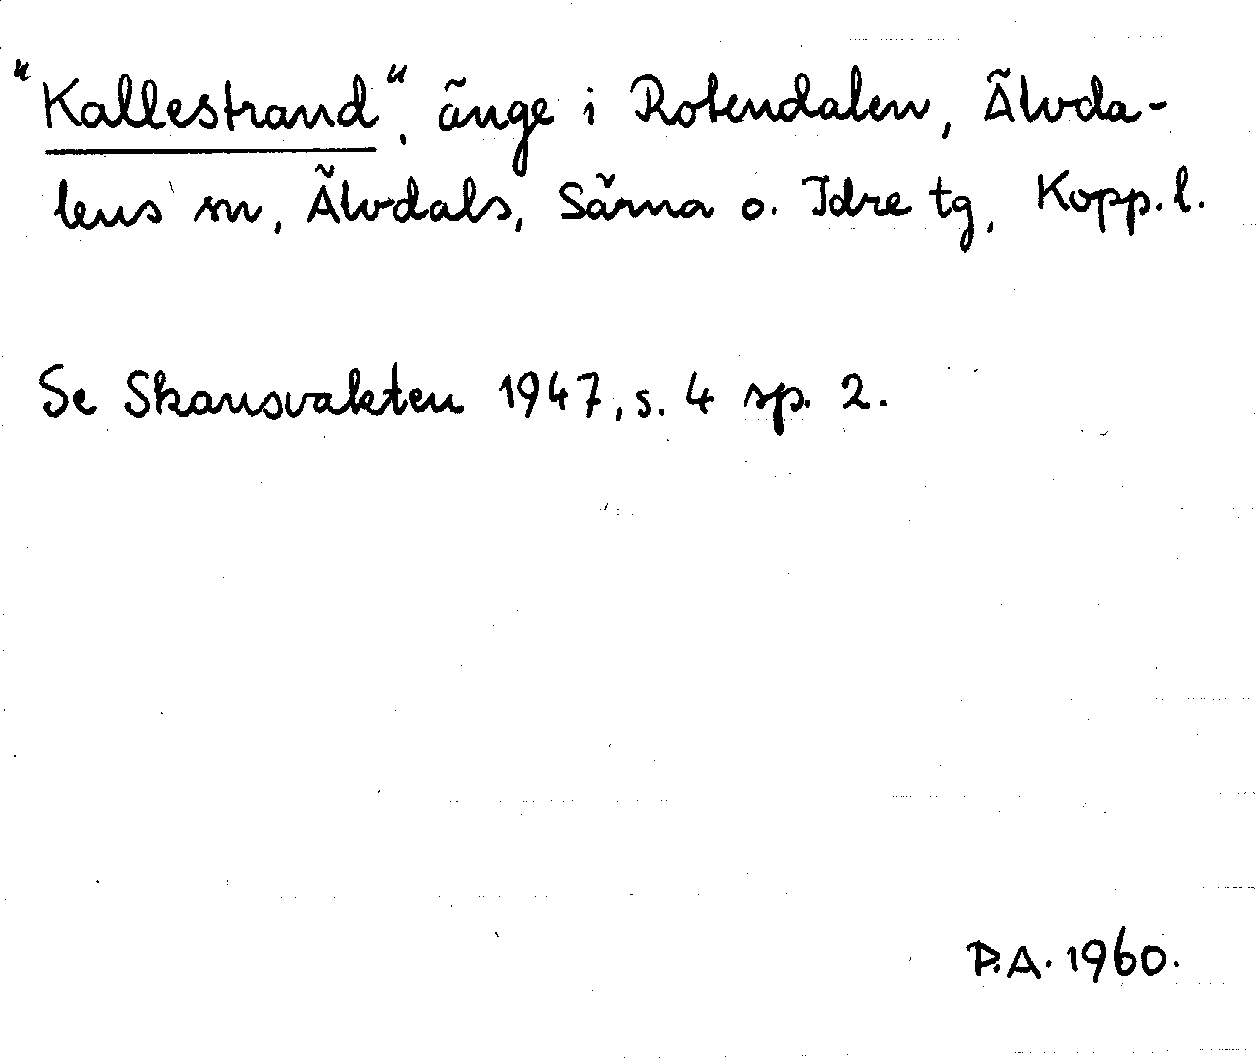 "Kallestrand", änge i Rotendalen, Älvda-
lens sn, Älvdals, Särna o. Idre tg, Kopp. l.
Se Skansvakten 1947, s. 4 sp. 2.
P.A. 1960.